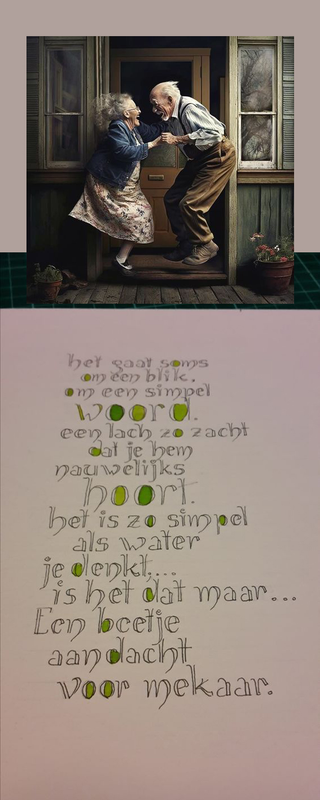 het gaat soms
om een blik.
om een simpel
woord.
een lach zo zacht
dat je hem
nauwelijks
hoort.
het is zo simpel
als water
je denkt,...
is het dat maar...
Een beetje
aandacht
voor mekaar.